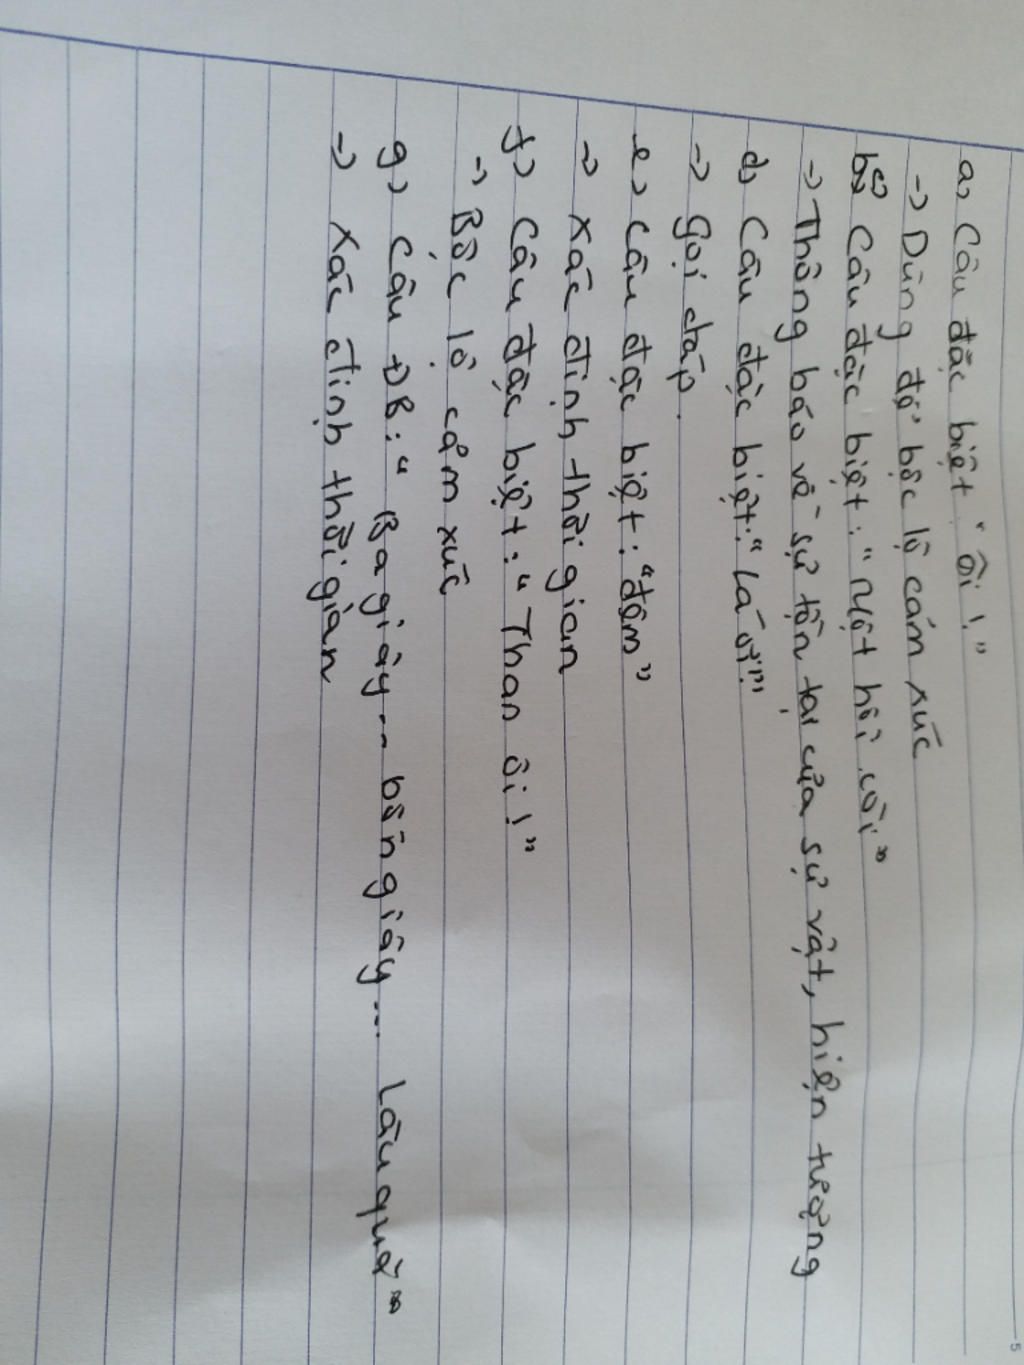 a) Câu đặc biệt "ôi!"
-> Dùng để bộc lộ cảm xúc
c) Câu đặc biệt: "Một hồi còi"
-> Thông báo về sự tồn tại của sự vật, hiện tượng
d) Câu đặc biệt: "Lá ơi!"
-> Gọi đáp.
e) Câu đặc biệt: "đêm"
-> Xác định thời gian
f) Câu đặc biệt: "Than ôi!"
-> Bộc lộ cảm xúc
g) Câu ĐB: "Ba giây... bốn giây... Lâu quá"
-> Xác định thời gian
5